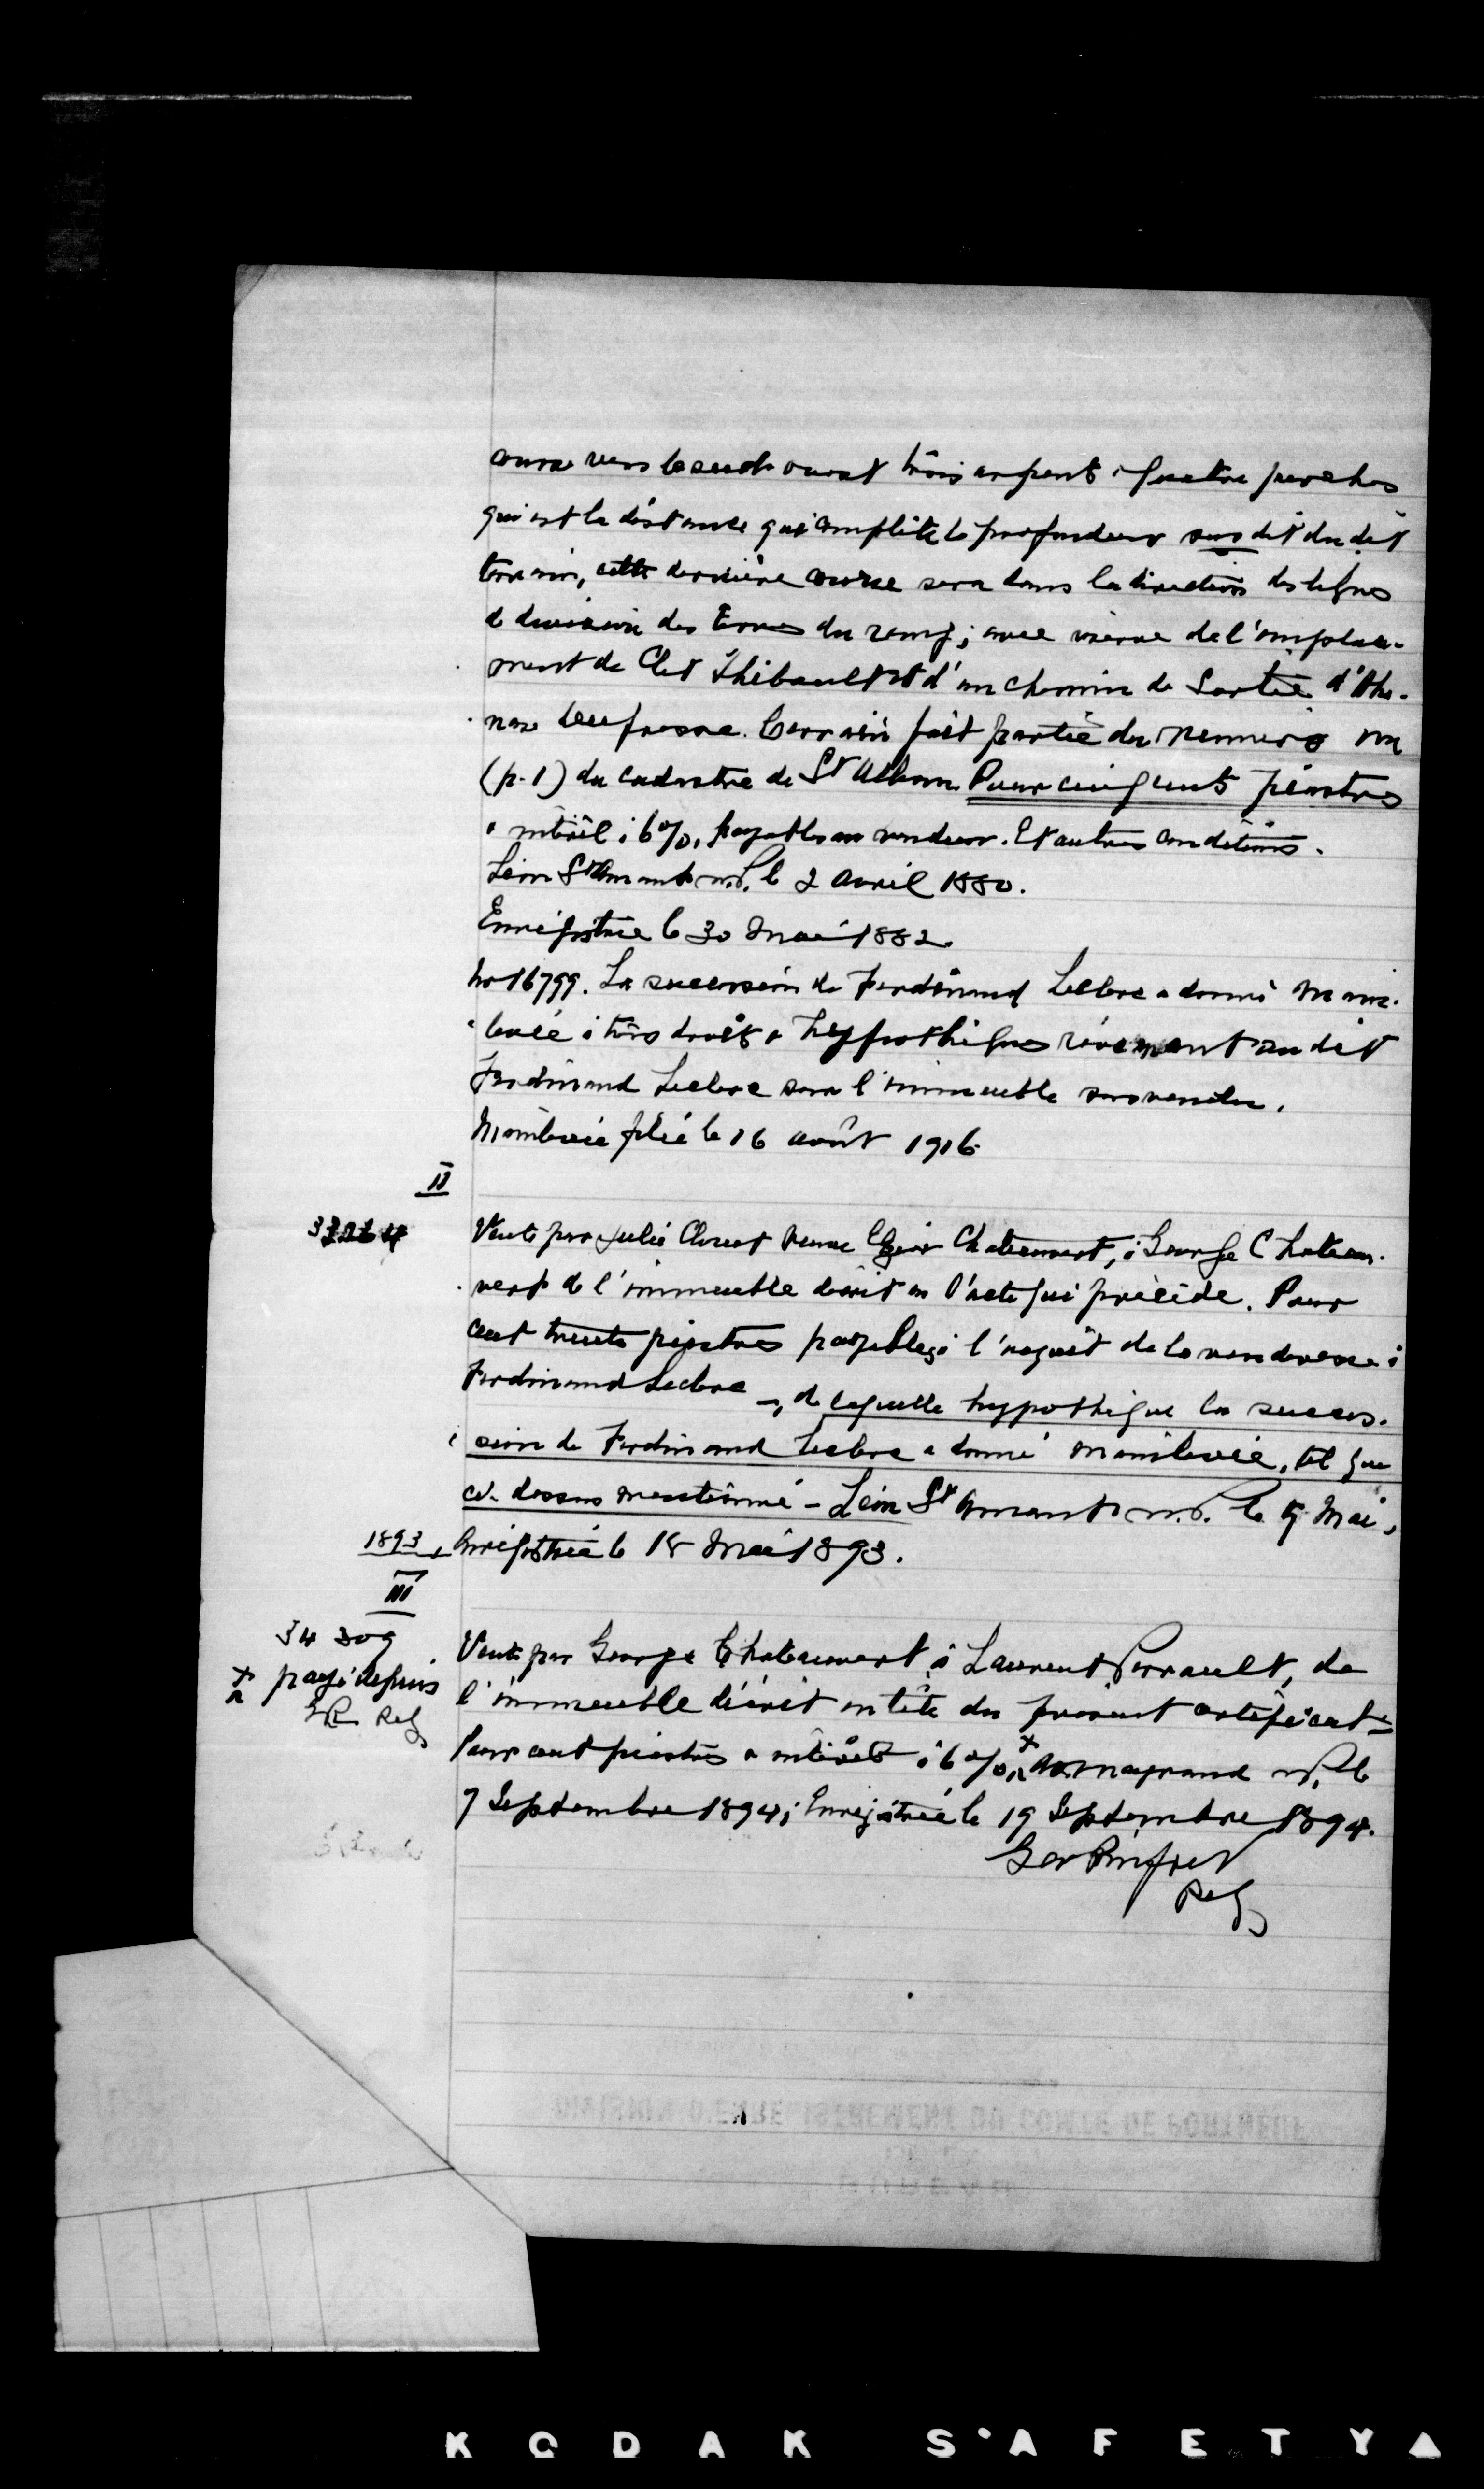 course vers le sud ouest trois arpents & quatre perches
qui est la distance qui complète la profondeur sus dit du dit
terrain, cette dernière course sera dans la direction des lignes
de division des terres du rang; avec réserve de l'emplace-
ment de Clet Thibault et d'un chemin de sortie d'Atha-
nase Dufresne. Ce terrain fait partie du numéro un
(p. 1) du cadastre de St Alban. Pour cinq cents piastres
& intérêt à 6%, payables au vendeur. Et autres conditions.
Léon St Amant n.p. le 2 avril 1880.
Enregistrée le 30 mai 1882.
No 16799. La succession de Ferdinand Leclerc a donné main-
levée à tous droits & hypothèques réservant au dit
Ferdinand Leclerc sur l'immeuble sus vendu.
Mainlevée filée le 16 août 1916.
II
Vente par Julie Clouet veuve Elzéar Chateauvert, à George Chateau-
vert de l'immeuble décrit en l'acte qui précède. Pour
cent trente piastres payables à l'acquit de la venderesse à
Ferdinand Leclerc —, de laquelle hypothèque la succes-
sion de Ferdinand Leclerc a donné mainlevée, tel que
ci-dessus mentionné - Léon St Amant n.p. le 9 Mai,
1893, Enregistrée le 18 Mai 1893.
III
34 309
Vente par George Chateauvert à Laurent Perrault, de
x payé depuis
l'immeuble décrit en tête du présent certificat -
GR Reg
Pour cent piastres & intérêt à 6%, x Mayrand n.p. le
7 Septembre 1894; Enregistrée le 19 Septembre 1894.
Geo Rinfret
Reg
DIVISION D'ENREGISTREMENT DU COMTE DE PORTNEUF
KODAK SAFETY